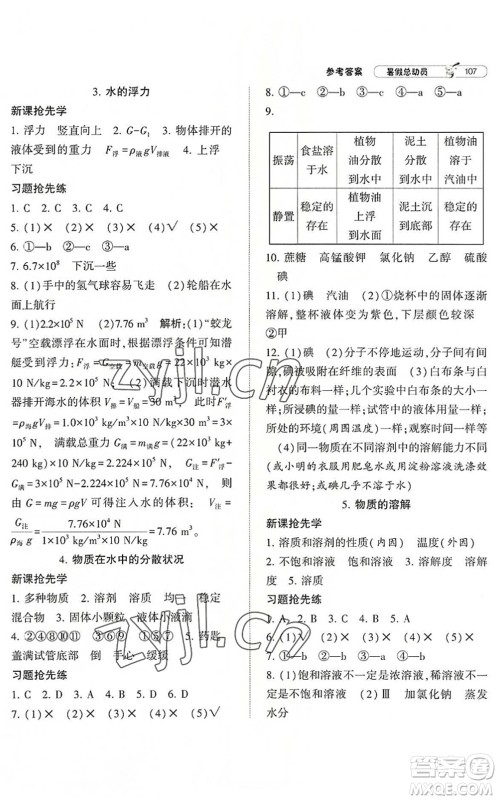 参考答案 暑假总动员 107
3. 水的浮力
新课抢先学
1. 浮力 竖直向上 2. G-G₁ 3. 物体排开的
液体受到的重力 F浮=ρ液gV排液 4. 上浮
下沉
习题抢先练
1. C 2. C 3. A 4. C
5. (1)× (2)× (3)× (4)√ (5)×
6. ①—b ②—a ③—c
7. 6.7×10⁸ 下沉一些
8. (1)手中的氢气球容易飞走 (2)轮船在水面
上航行
9. (1)2.2×10⁵ N (2)7.76 m³ 解析:(1)“蛟龙
号”空载漂浮在水面时,根据漂浮条件可知潜
艇受到浮力:F浮=G空载=m空载g=22×10³ kg
×10 N/kg=2.2×10⁵ N (2)满载下沉时潜水
器排开海水的体积:V排=V=30 m³,此时F′浮
=ρ海gV排=1×10³ kg/m³×10 N/kg×30 m³
=3×10⁵ N,满载总重力G满=m满g=(22×10³ kg+
240 kg)×10 N/kg=2.224×10⁵ N,G注=F′浮
-G满=3×10⁵ N-2.224×10⁵ N=7.76×10⁴ N,
由G=mg=ρgV可得注入水的体积:V注=
G注/ρ海g=7.76×10⁴ N/1×10³ kg/m³×10 N/kg=7.76 m³
4. 物质在水中的分散状况
新课抢先学
1. 多种物质 2. 溶质 溶剂 均一 稳定
混合物 3. 固体小颗粒 液体小液滴
4. ②④⑧⑩⑪ ①⑤⑨ ③⑥⑦ 5. 药匙
盖满试管底部 倒 手心 缓缓
习题抢先练
1. C 2. D 3. A 4. B 5. A 6. D
7. (1)× (2)× (3)√ (4)× (5)×
8. ①—c ②—b ③—a ④—d ⑤—a
9.
振荡 食盐溶于水 植物油分散到水中 泥土分散到水中 植物油溶于汽油中
静置 稳定的存在 植物油上浮到水面 泥土沉到底部 稳定的存在
10. 蔗糖 高锰酸钾 氯化钠 乙醇 硫酸
碘
11. (1)碘 汽油 (2)①烧杯中的固体逐渐
消溶解,整杯液体变为紫色,上部颜色较深
②甲
12. (1)碘 (2)分子不停地运动,分子间有间
隙。碘被吸附在纤维的表面 (3)白布条与白
衬衣的布料一样;布条的大小与试管中的一样;
所浸泡的碘量与一样;试管中的液体用量一
样;实验的环境(周围温度)一样;观察时间一样
(4)同一物质在不同溶剂中的溶解能力不同
(或小明的衣服用肥皂水或用淀粉溶液洗涤效
果都比碘几乎不溶于水好)
5. 物质的溶解
新课抢先学
1. 溶质和溶剂的性质(内因) 温度(外因)
2. 不饱和溶液 饱和溶液 3. 温度 4. 溶
解度 5. 溶质
习题抢先练
1. D 2. A 3. B 4. B 5. A
6. (1)× (2)√ (3)× (4)× (5)√
7. ①—b ②—c ③—a
8. (1)饱和溶液 不饱和溶液 不饱和溶液
不饱和溶液 (2)Ⅲ 加氯化钠 蒸发
水分